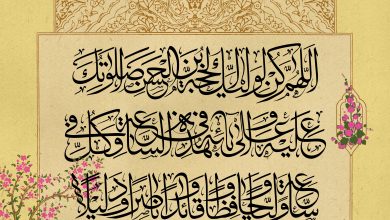 اللهم كن لوليك الحجة بن الحسن صلواتك
عليه وعلى آبائه في هذه الساعة وفي كل
ساعة وليا وحافظا وقائدا وناصرا ودليلا